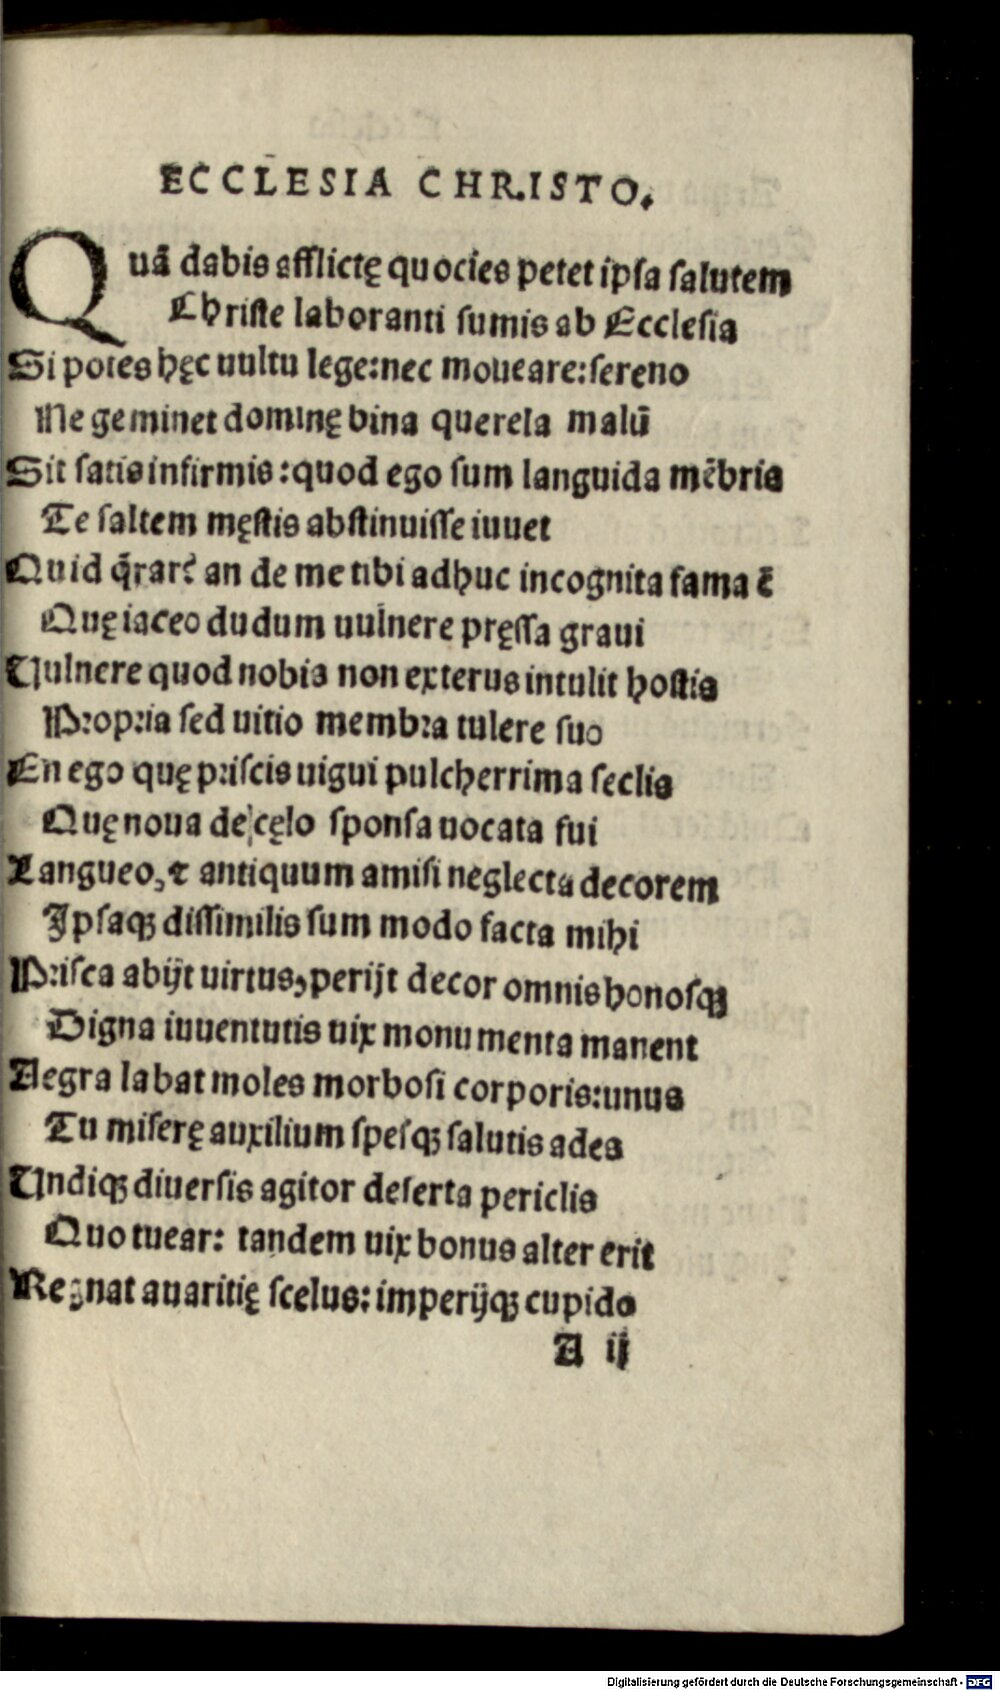 ECCLESIA CHRISTO.
Quã dabis afflictę quocies petet ipsa salutem
Christe laboranti sumis ab Ecclesia
Si potes hęc uultu lege:nec moueare:sereno
Ne geminet dominę bina querela malũ
Sit satis infirmis:quod ego sum languida mẽbris
Te saltem męstis abstinuisse iuuet
Quid q̃rar? an de me tibi adhuc incognita fama ẽ
Quę iaceo dudum uulnere pręssa graui
Vulnere quod nobis non exterus intulit hostis
Propria sed uitio membra tulere suo
En ego quę priscis uigui pulcherrima seclis
Quę noua de cęlo sponsa uocata fui
Langueo, ⁊ antiquum amisi neglecta decorem
Ipsaqꝫ dissimilis sum modo facta mihi
Prisca abijt uirtus, perijt decor omnis honosqꝫ
Digna iuuentutis uix monumenta manent
Aegra labat moles morbosi corporis:unus
Tu miserę auxilium spesqꝫ salutis ades
Vndiqꝫ diuersis agitor deserta periclis
Quo tuear: tandem uix bonus alter erit
Regnat auaritię scelus: imperijqꝫ cupido
A ij
Digitalisierung gefördert durch die Deutsche Forschungsgemeinschaft - DFG